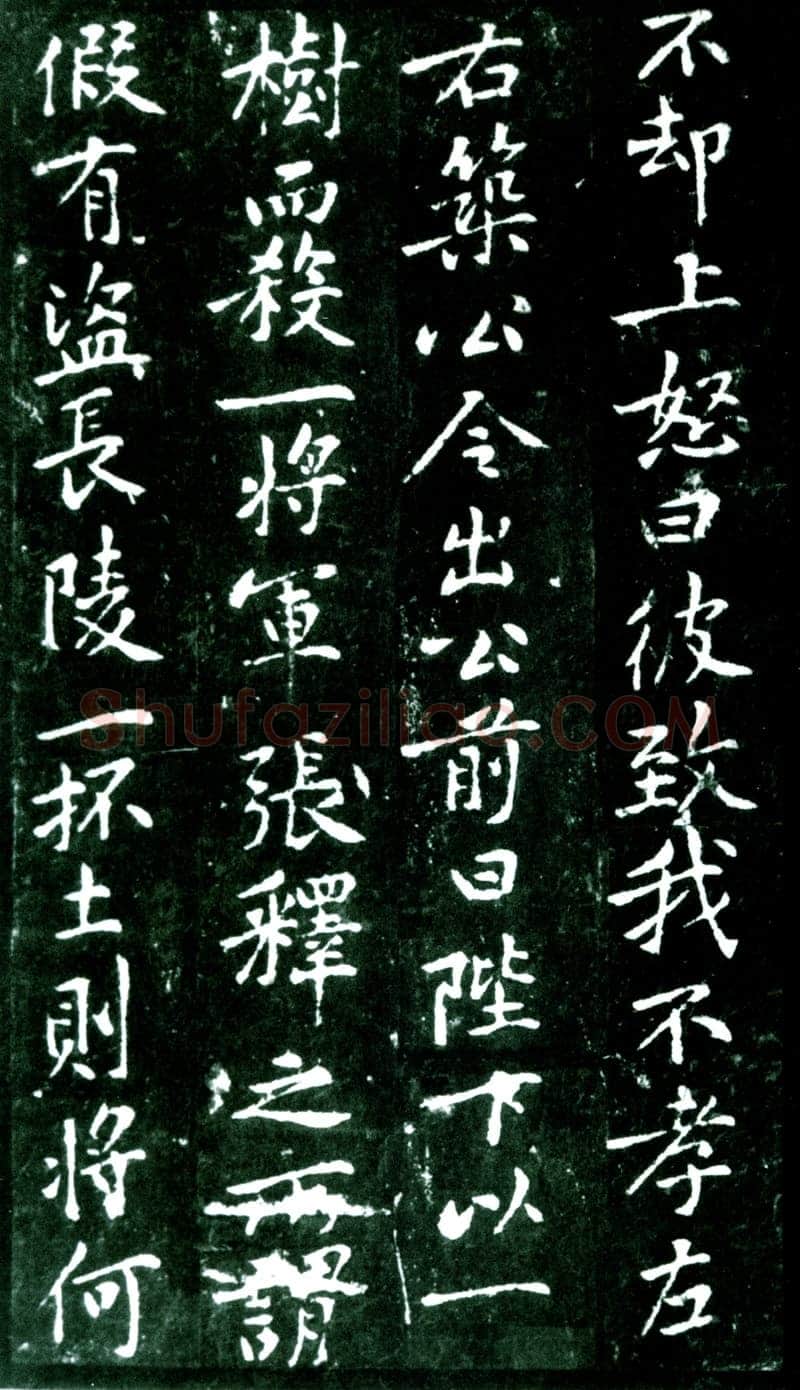 不却上怒曰彼致我不孝左
右築公令出公前曰陛下以一
樹而殺一將軍張釋之謂
假有盜長陵一抔土則將何
Shufaziliao.COM